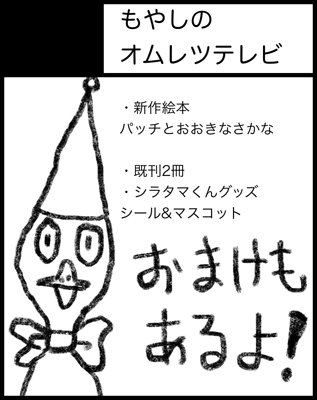 もやしの
オムレツテレビ
・新作絵本
パッチとおおきなさかな
・既刊2冊
・シラタマくんグッズ
シール&マスコット
おまけも
あるよ!